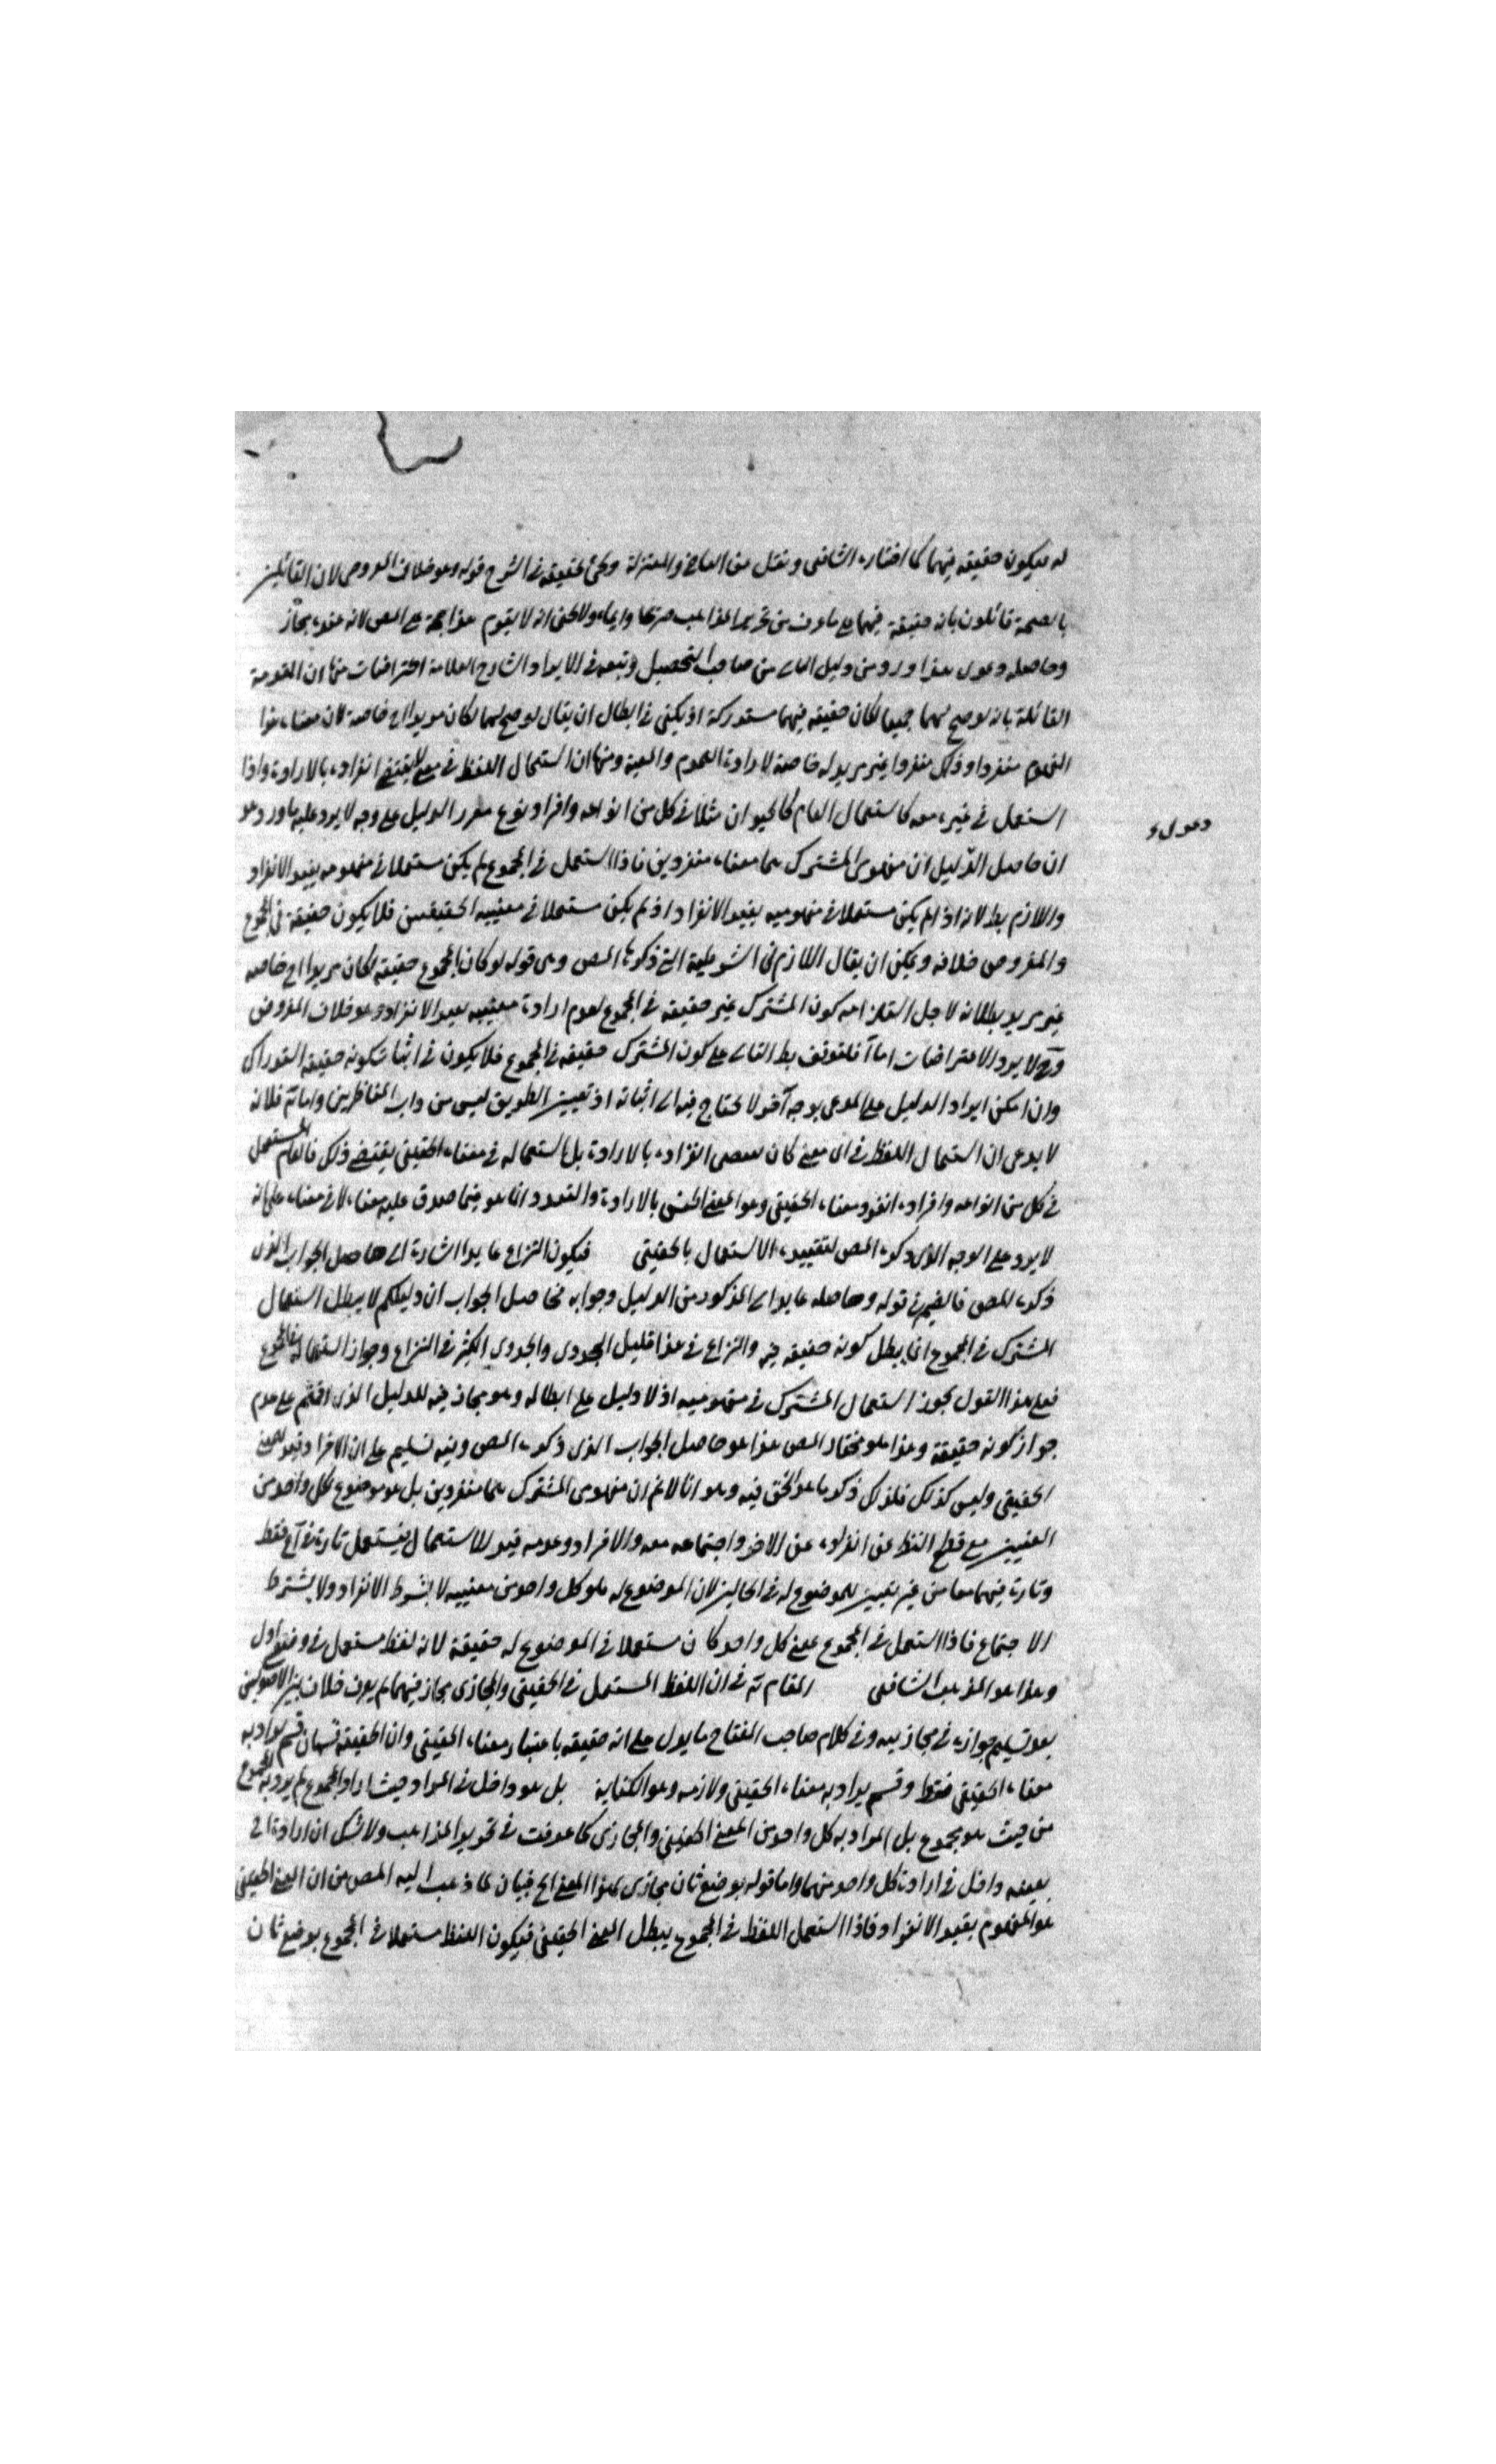 له فيكون حقيقة فيهما كما اختاره الشافعي ونقل عن القاضي والمعتزلة وسيجيء تحقيقه في الشرح قوله وهو خلاف المفروض لان القائلين
بالصحة قائلون بانه حقيقة فيهما على ما عرف من تحرير المذاهب صريحا وايماء ولا يخفى انه لا يقوم هذا حجة على المص لانه عنده مجاز
وحاصله دعوى هذا ورد من دليل من صاحب التحصيل وتبعه في الايراد الشارح العلامة اعتراضات منها ان المقدمة
القائلة بانه لو صح لهما جميعا لكان حقيقة فيهما مستدركة اذ يكفي في ابطال ان يقال لو صح لهما لكان مريدا الى خاصة لان معناه هذا
المفهوم منفردا وذلك منفردا غير مريد له خاصة لارادة العموم والمعية ومنها ان استعمال اللفظ في معنى لا يقتضي انفراده بالارادة واذا
استعمل في غيره معه كاستعمال العام كالحيوان مثلا في كل من انواعه وافراد نوع مقرر الدليل على وجه لا يرد عليه ما ورد وهو
ان حاصل الدليل ان مفهومي المشترك هما معناه منفردين فاذا استعمل في المجموع لم يكن مستعملا في مفهومه بقيد الانفراد
واللازم بط لانه اذا لم يكن مستعملا في مفهوميه بقيد الانفراد اذ لم يكن مستعملا في معنييه الحقيقيين فلا يكون حقيقة في المجموع
والمفروض خلافه ويمكن ان يقال اللازم في الشرطية التي ذكرها المص وهي قوله لو كان المجموع حقيقة لكان مريدا الى خاصه
غير مريد بطلانه لاجل استلزامه كون المشترك غير حقيقة في المجموع لعدم ارادة معنييه بقيد الانفراد وهو خلاف المفروض
وح لا يرد الاعتراضات اما آ فلتوقف بط التالي على كون المشترك حقيقة في المجموع فلا يكون في اثبات كونه حقيقة استدراك
وان امكن ايراد الدليل على المدعى بوجه آخر لا يحتاج فيه الى اثباته اذ تعيين الطريق ليس من داب المناظرين واما فلانه
لا يدعي ان استعمال اللفظ في اي معنى كان يقتضي انفراده بالارادة بل استعماله في معناه الحقيقي يقتضي ذلك فالعام المستعمل
في كل من انواعه وافراده انفرد معناه الحقيقي وهو المعنى الجنسي بالارادة والتعدد انما هو فيما صدق عليه معناه لا في معناه على انه
لا يرد على الوجه الذي ذكره المص لتقييده الاستعمال بالحقيقي فيكون النزاع عايدا اشارة الى حاصل الجواب الذي
ذكره المص فالضمير في قوله وحاصله عايد الى المذكور من الدليل وجوابه فحاصل الجواب ان دليلكم لا يبطل استعمال
المشترك في المجموع انما يبطل كونه حقيقة فيه والنزاع في هذا قليل الجدوى والجدوى الكثير في النزاع وجواز استعماله في المجموع
فعلى هذا القول يجوز استعمال المشترك في مفهوميه اذ لا دليل على ابطاله وهو مجاز فيه للدليل الذي اقتم على عدم
جواز كونه حقيقة وهذا هو مختار المص هذا هو حاصل الجواب الذي ذكره المص وفيه تسليم على ان الافراد قيد للمعنى
الحقيقي وليس كذلك فلذلك ذكر ما هو الحق فيه وهو انا لا نم ان مفهومي المشترك هما منفردين بل هو موضوع لكل واحد من
المعنيين مع قطع النظر عن انفراده عن الاخر واجتماعه معه والافراد وعدمه قيد للاستعمال فيستعمل تارة في آ فقط
وتارة فيهما معا من غير تغيير للموضوع له في الحالين لان الموضوع له هو كل واحد من معنييه لا بشرط الانفراد ولا بشرط
الاجتماع فاذا استعمل في المجموع على كل واحد كان مستعملا في الموضوع له حقيقة لانه لفظ مستعمل في وضع اول
وهذا هو المذهب الشافعي المقام ية في ان اللفظ المستعمل في الحقيقي والمجازي مجاز فيهما لم يعرف خلاف بين الاصوليين
بعد تسليم جوازه في مجازييه وفي كلام صاحب المفتاح ما يدل على انه حقيقة باعتبار معناه الحقيقي وان الحقيقة قسمان قسم يراد به
معناه الحقيقي فقط وقسم يراد به معناه الحقيقي ولازمه وهو الكناية بل هو داخل في المراد حيث اراد المجموع لم يرد به المجموع
من حيث هو مجموع بل المراد به كل واحد من المعنى الحقيقي والمجازي كما عرفت في تحرير المذاهب ولا شك ان ارادة الى
بعينه داخل في ارادة كل واحد منهما واما قوله بوضع ثان مجازي لهذا المعنى الخ فبيان لما ذهب اليه المص من ان المعنى الحقيقي
هو المفهوم بقيد الانفراد فاذا استعمل اللفظ في المجموع يبطل المعنى الحقيقي فيكون اللفظ مستعملا في المجموع بوضع ثان